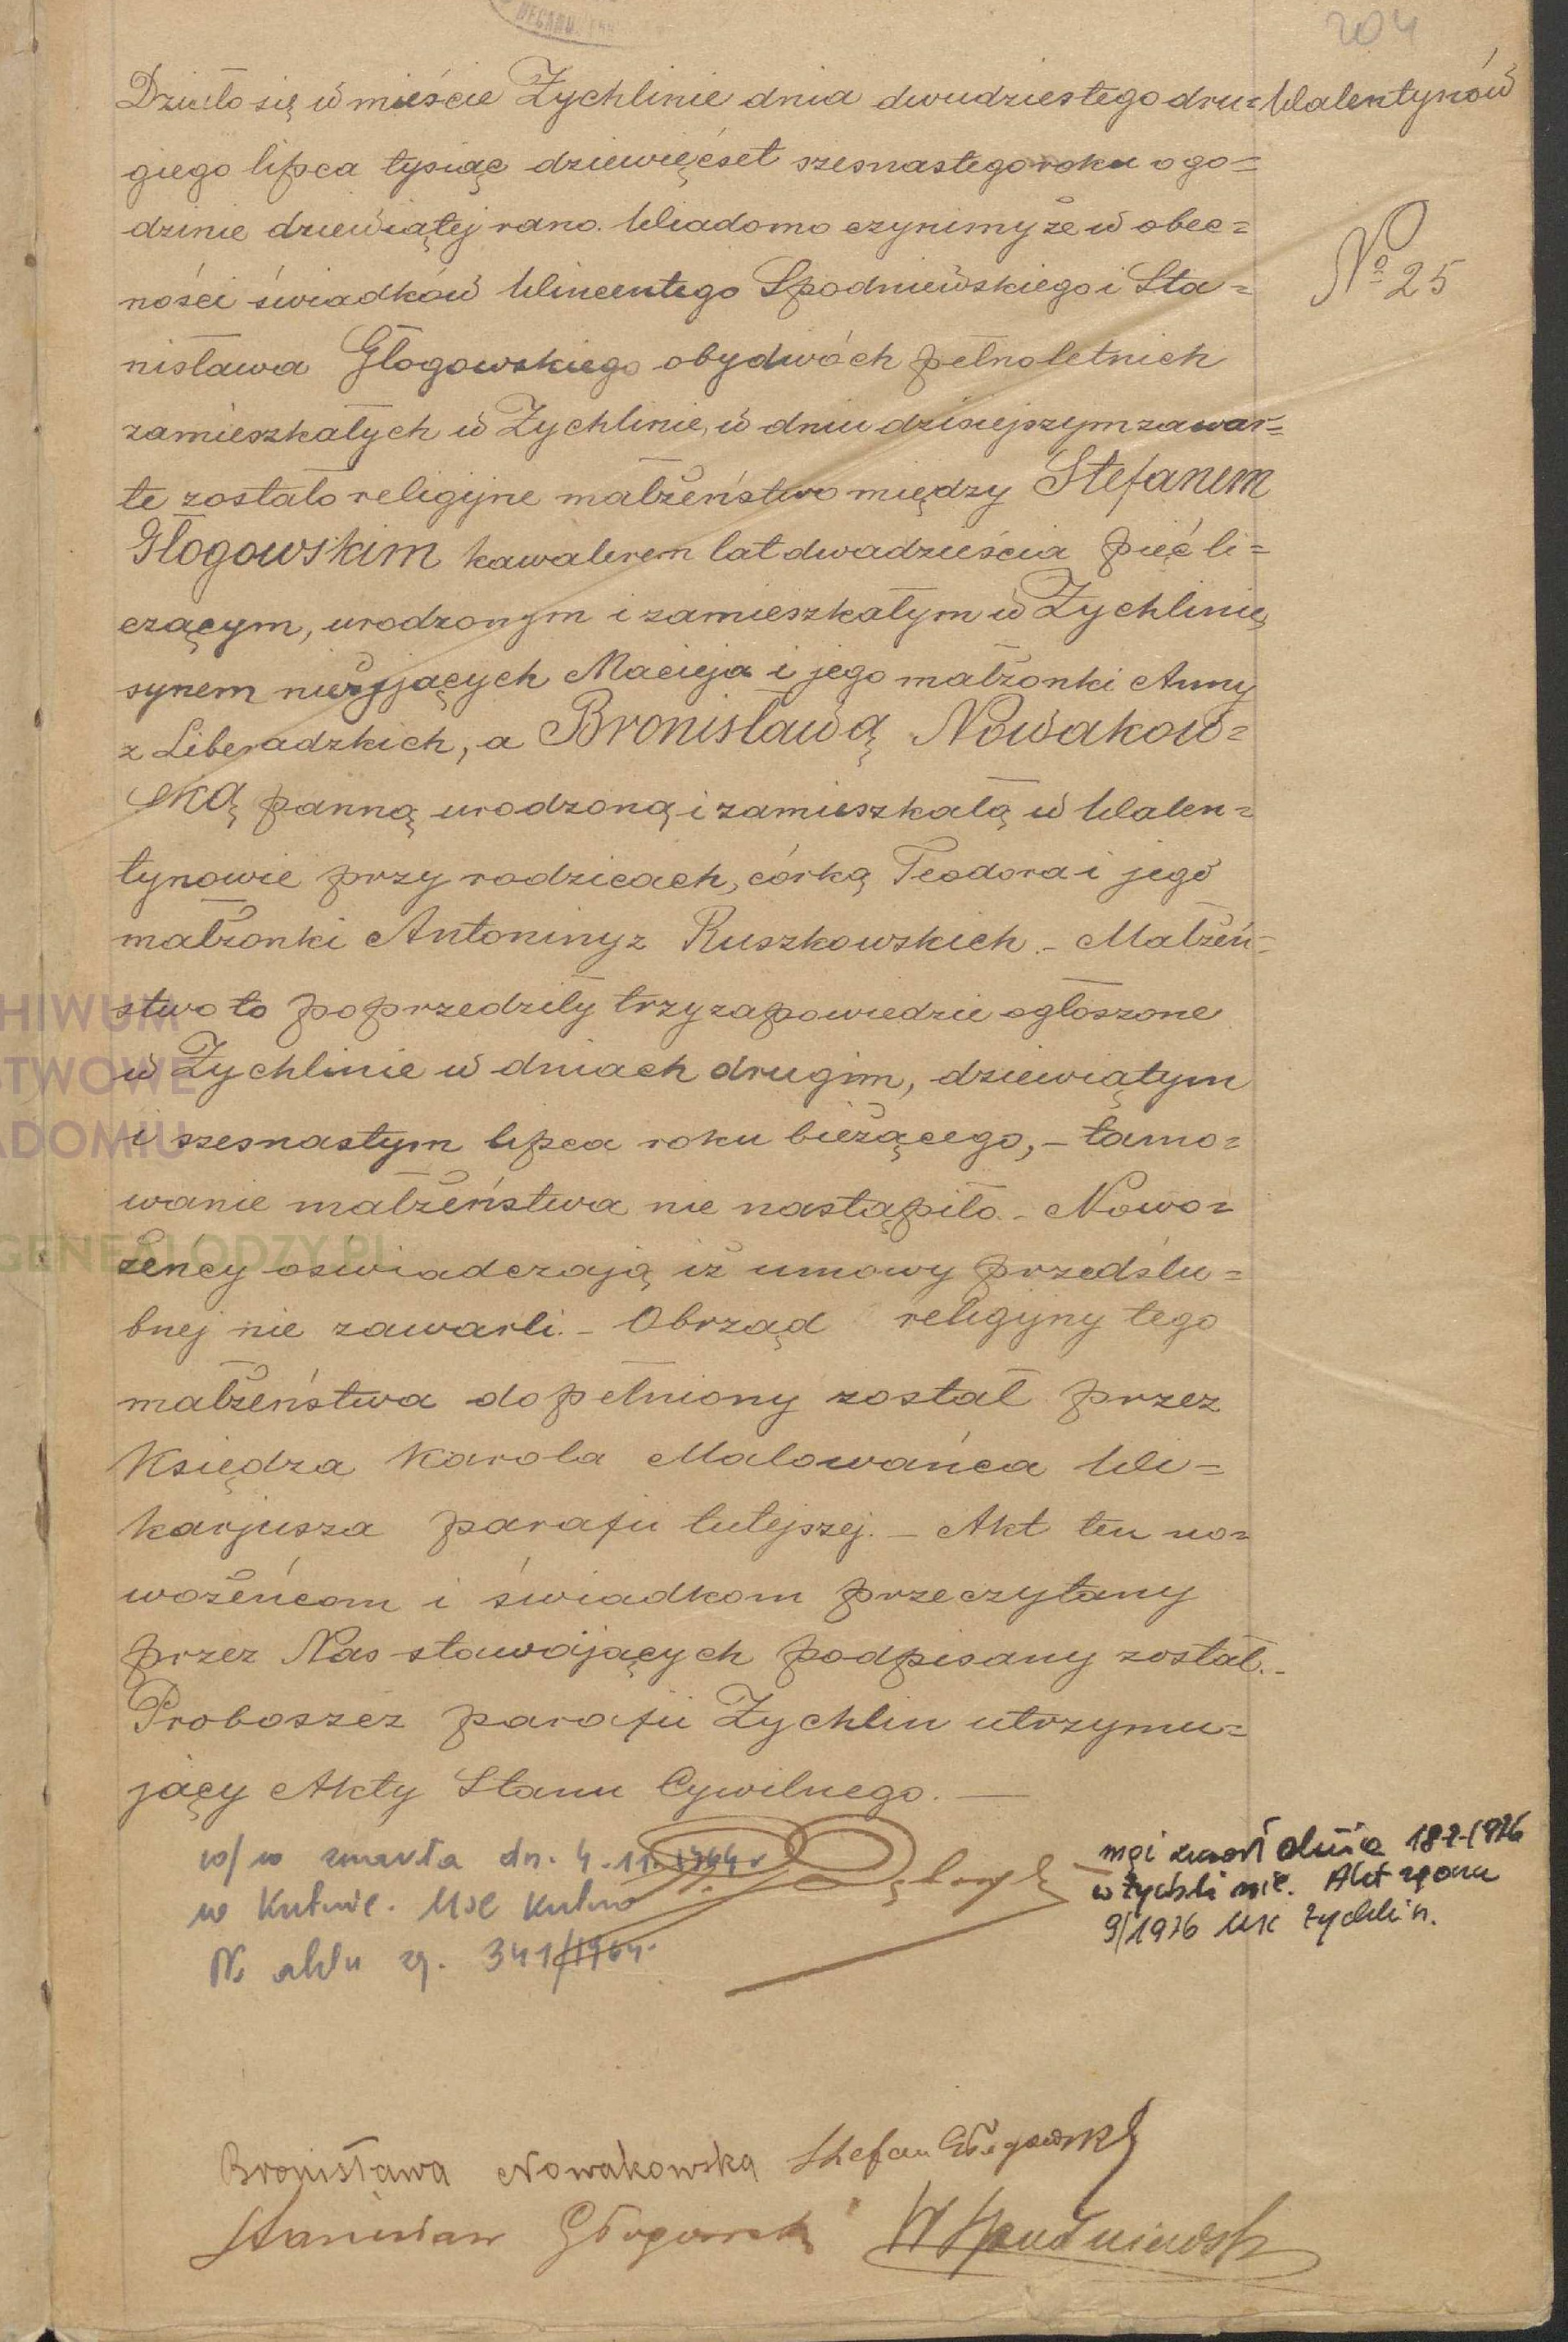 204
Działo się w mieście Żychlinie dnia dwudziestego dru=
Walentynów
giego lipca tysiąc dziewięćset szesnastego roku o go=
dzinie dziewiątej rano. Wiadomo czynimy że w obec=
ności świadków Wincentego Spodniewskiego i Sta=
No 25
nisława Głogowskiego obydwóch pełnoletnich
zamieszkałych w Żychlinie, w dniu dzisiejszym zawar=
te zostało religijne małżeństwo między Stefanem
Głogowskim kawalerem lat dwadzieścia pięć li=
czącym, urodzonym i zamieszkałym w Żychlinie,
synem nieżyjących Macieja i jego małżonki Anny
z Liberadzkich, a Bronisławą Nowakow=
ską panną urodzoną i zamieszkałą w Walen=
tynowie przy rodzicach, córką Teodora i jego
małżonki Antoniny z Ruszkowskich. - Małżeń=
stwo to poprzedziły trzy zapowiedzie ogłoszone
w Żychlinie w dniach drugim, dziewiątym
i szesnastym lipca roku bieżącego, - tamo=
wanie małżeństwa nie nastąpiło. - Nowo=
żeńcy oświadczają iż umowy przedślu=
bnej nie zawarli. - Obrząd religijny tego
małżeństwa dopełniony został przez
Księdza Karola Malowańca Wi=
karjusza parafii tutejszej. - Akt ten no=
wożeńcom i świadkom przeczytany
przez Nas stawających podpisany został. -
Proboszcz parafii Żychlin utrzymu=
jący Akty Stanu Cywilnego. —
w/w zmarła dn. 4.11.1964 r
w Kutnie. USC Kutno
Nr aktu zg. 341/1964.
mąż zmarł dnia 18-2-1976
w Żychlinie. Akt zgonu
9/1976 USC Żychlin.
Bronisława Nowakowska Stefan Głogowski
Stanisław Głogowski W Spodniewski
ARCHIWUM
PAŃSTWOWE
W RADOMIU
GENEALODZY.PL